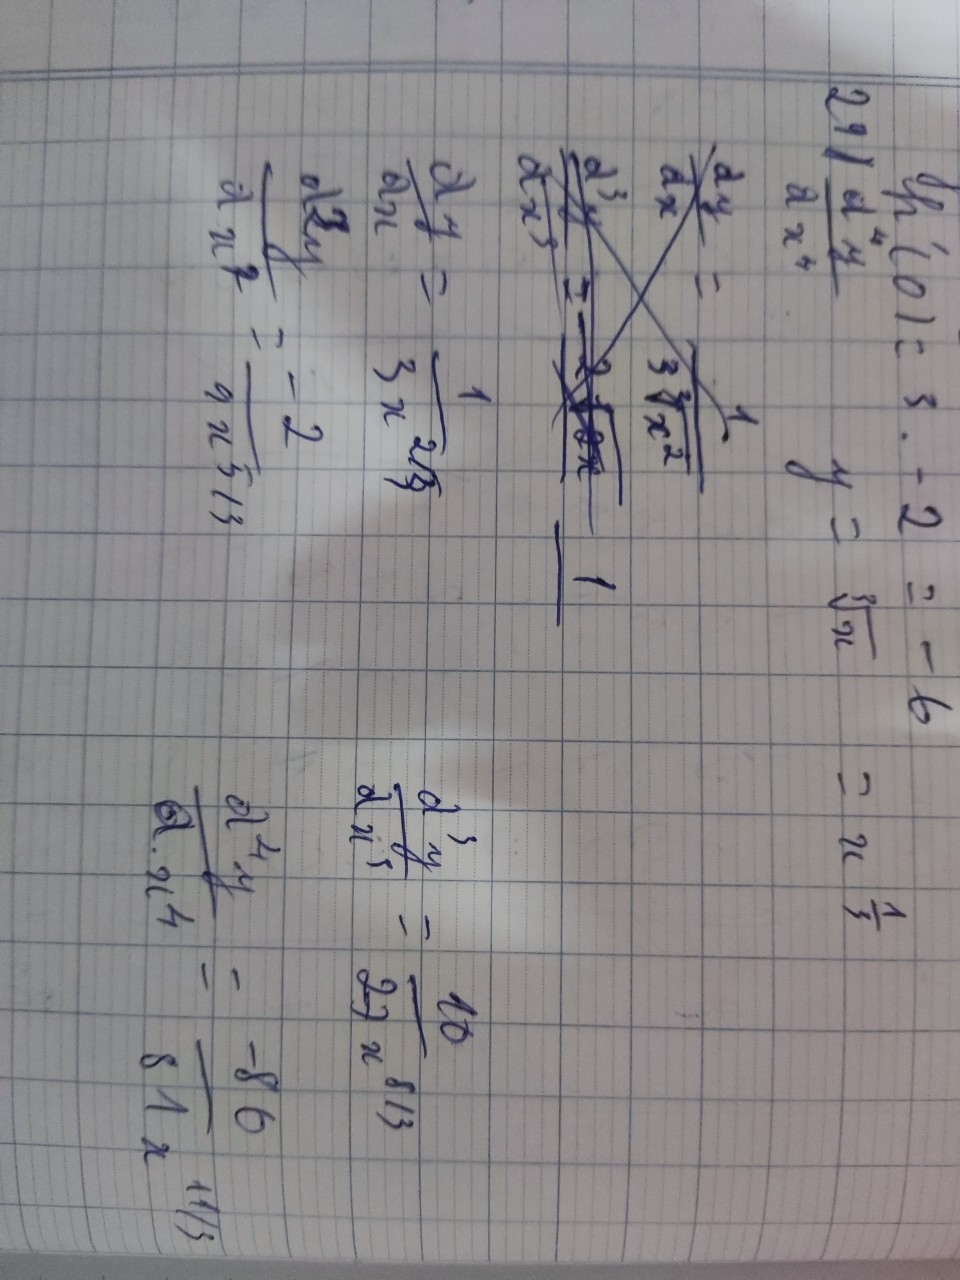 h'(0) = 3. -2 = -6
29) d⁴y/dx⁴ y = ∛x = x^1/3
dy/dx = 1/3∛x²
d³y/dx³ = 1
dy/dx = 1/3x^2/3
d²y/dx² = -2/9x^5/3
d³y/dx³ = 10/27x^8/3
d⁴y/dx⁴ = -86/81x^11/3